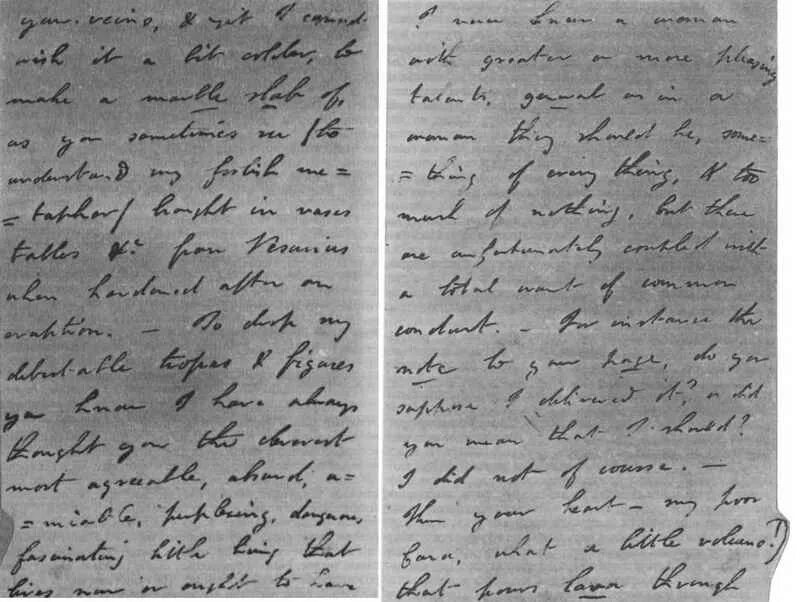 your veins, & yet I cannot
wish it a bit colder, to
make a marble slab of,
as you sometimes see /to
understand my foolish me=
=taphor/ brought in vases
tables &c from Vesuvius
when hardened after an
eruption. — To drop my
detestable tropes & figures
you know I have always
thought you the cleverest
most agreeable, absurd, a=
=miable, perplexing, dangerous
fascinating little being that
lives now or ought to have
I never knew a woman
with greater or more pleasing
talents, general as in a
woman they should be, some=
=thing of every thing, & too
much of nothing, but these
are unfortunately coupled with
a total want of common
conduct. — For instance the
note to your page, do you
suppose I delivered it? or did
you mean that I should?
I did not of course. —
Then your heart — my poor
Caro, what a little volcano!)
that pours lava through